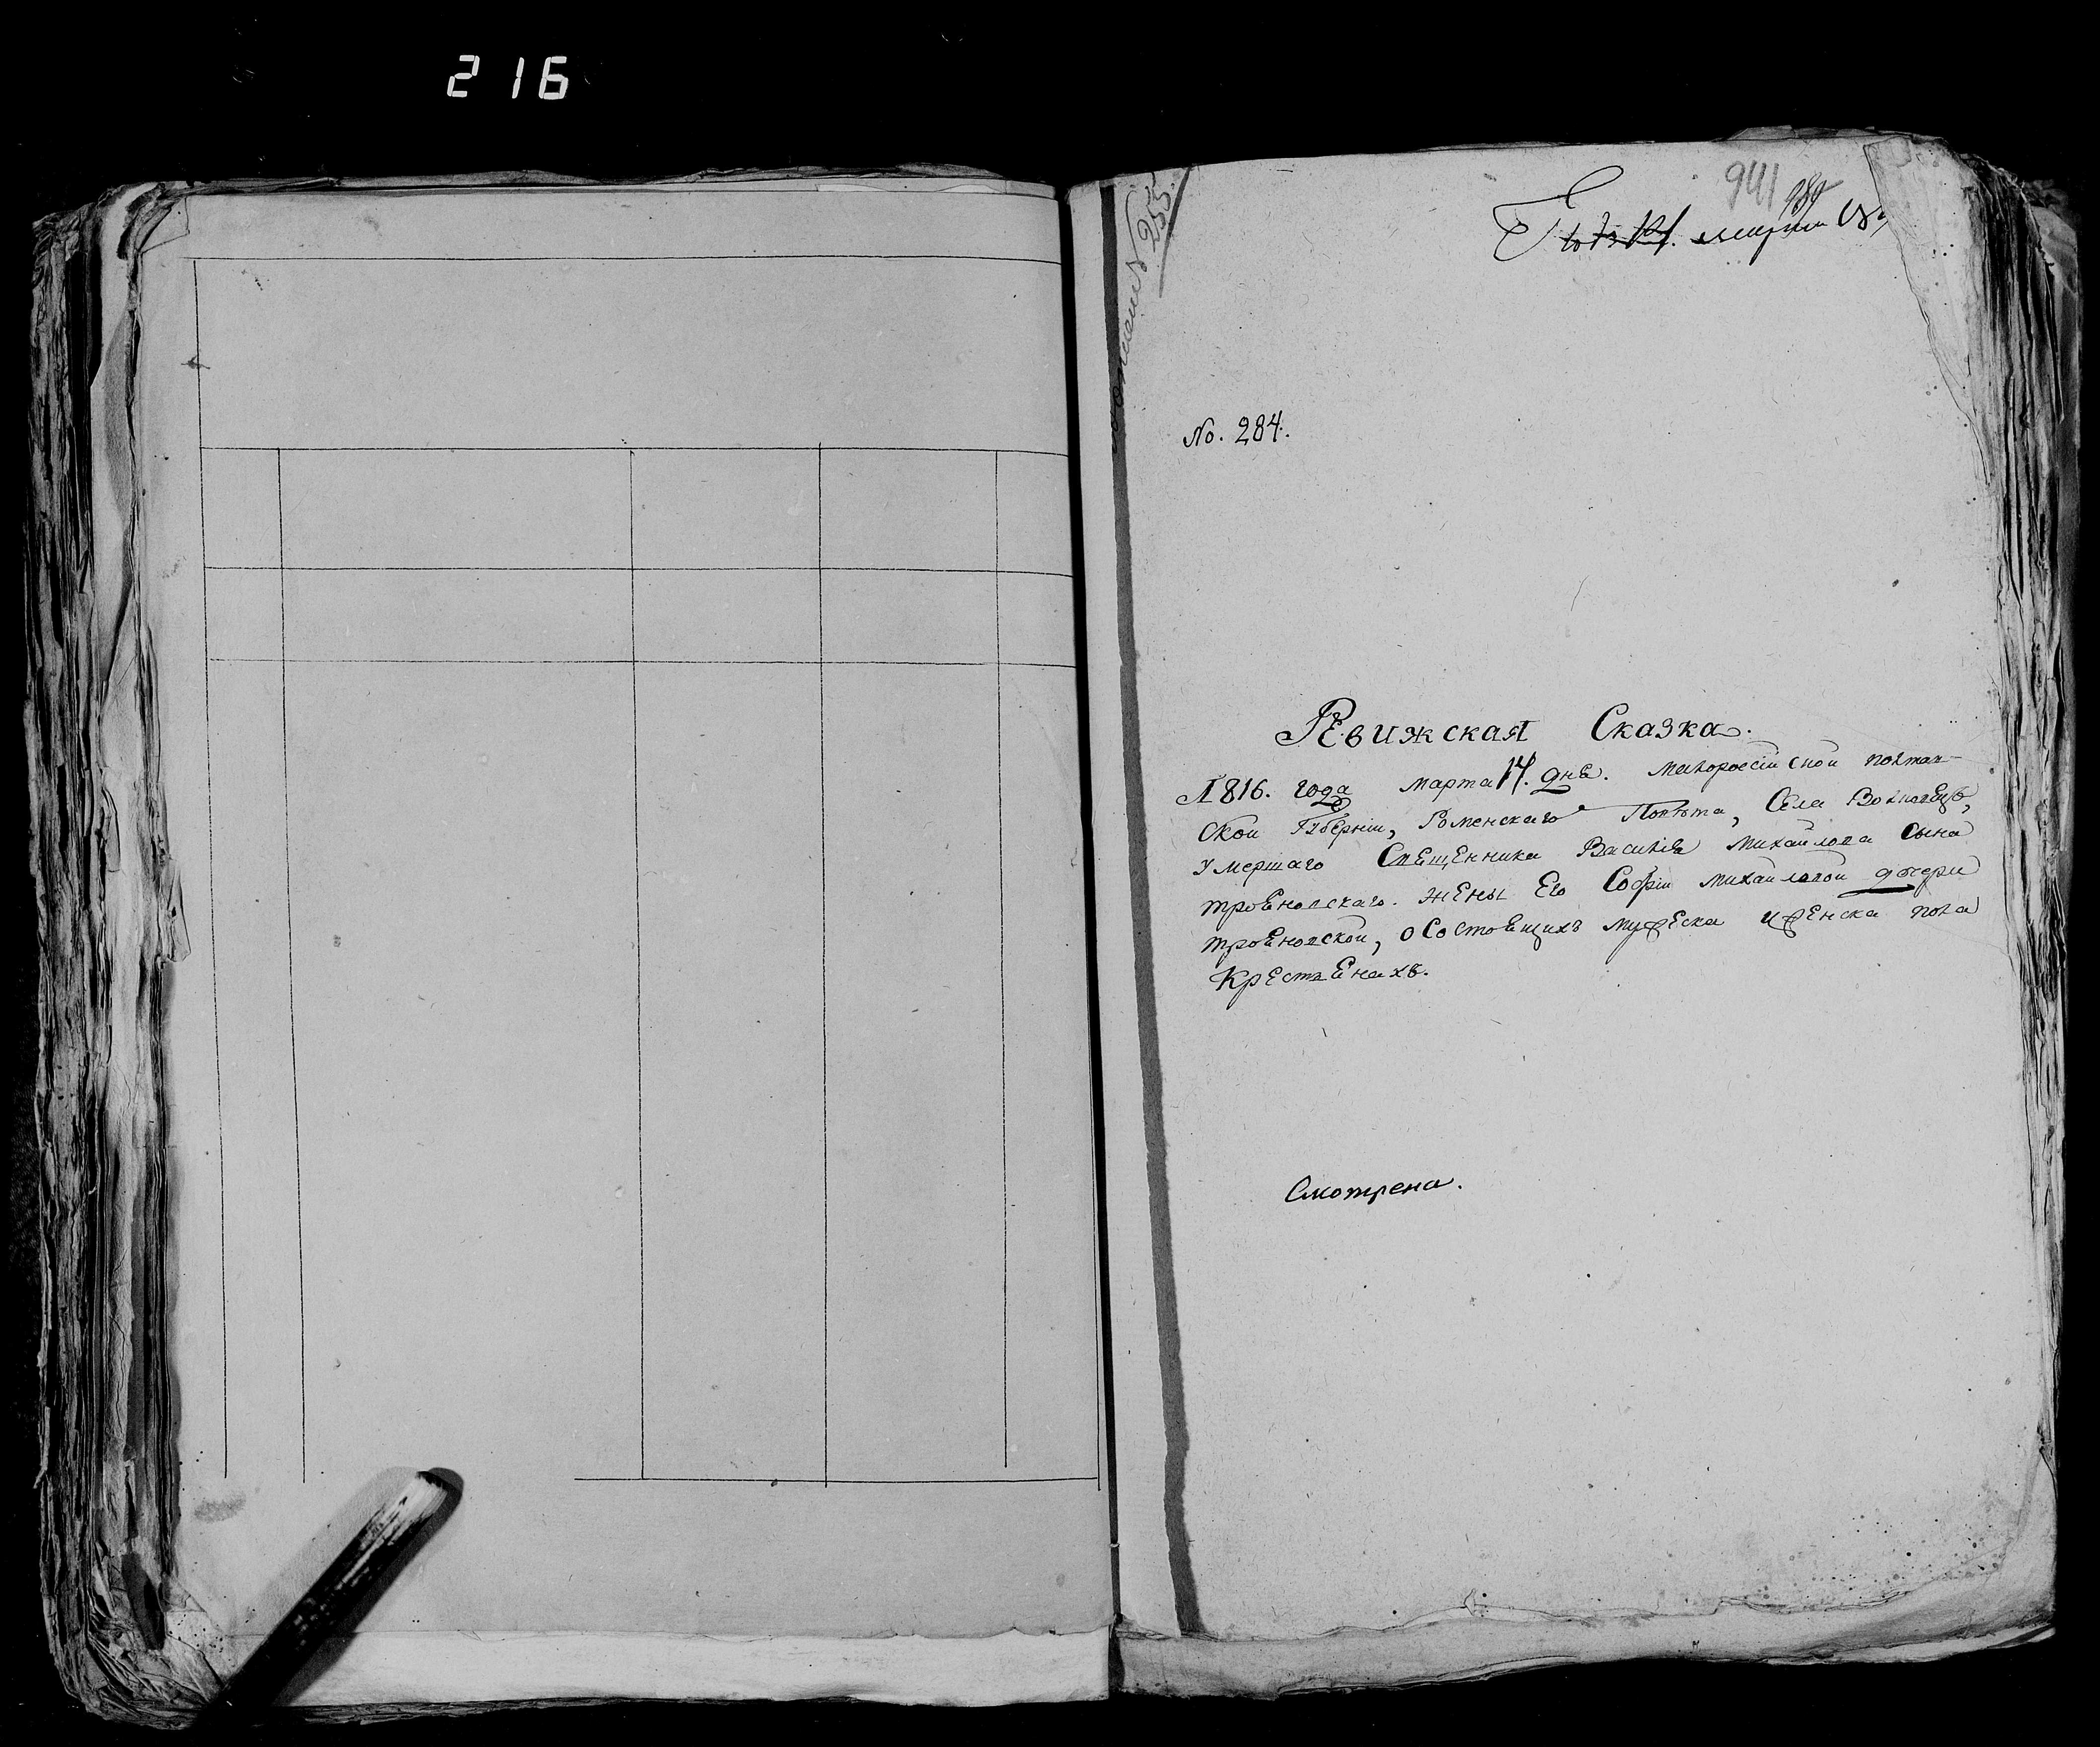 216
941
284
марта 18
255
No. 284.
Ревижская Сказка.
1816. года марта 14. дня. малоросійской полтав-
ской Губерніи, Роменскаго Повѣта, Села
умершаго Священника Василія Михайлова сына
трояновскаго. жены Его Софіи михайловой дочери
трояновской, о Состоящихъ мужеска иженска пола
Крестьянахъ.
Смотрена.